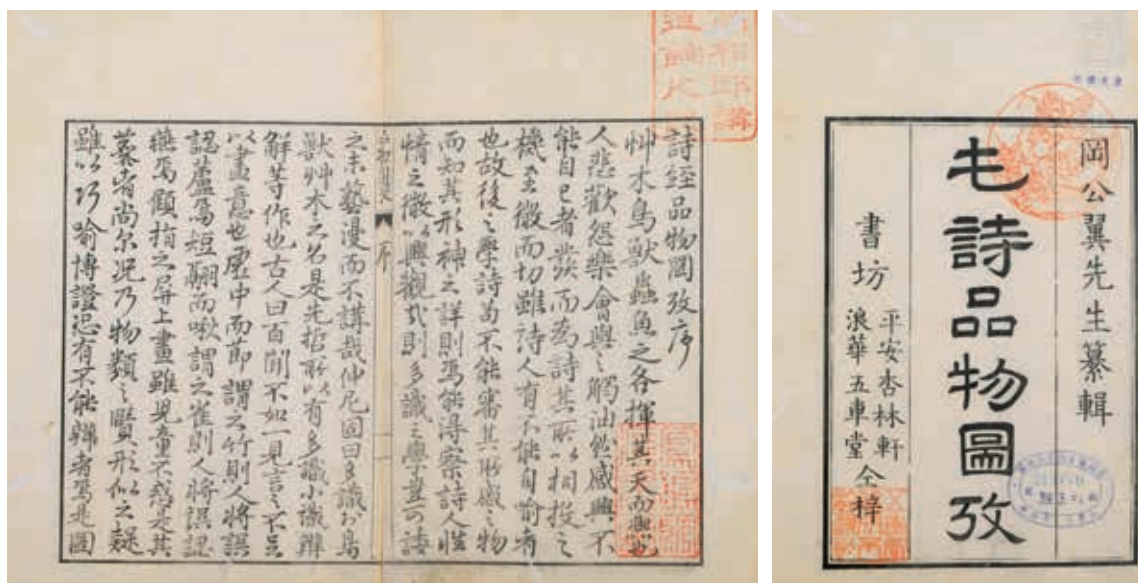 岡公翼先生纂輯
毛詩品物圖攷
書坊
平安杏林軒
浪華五車堂
仝梓
詩經品物圖攷序
艸木鳥獸蟲魚之各揮其天而
人悲歡怨樂會興之觸油然感興不
能自已者發而為詩其所以相投之
機至微而切雖詩人有不能自喻者
也故後之學詩苟不能審其所感之物
而知其形神之詳則焉能得察詩人性
情之微以興觀哉則多識之學豈可諉
序
之末藝漫而不講哉仲尼固曰多識於鳥
獸艸木之名是先哲所以有多識小識辨
解等作也古人曰百聞不如一見言之不足
以畫意也虛中而節謂之竹則人將誤
認蘆焉短翮而啾謂之雀則人將誤認
焉顧指之屏上畫雖兒童不惑是其
者尚尔況乃物類之賾形似之疑
雖以巧喻博證恐有不能辨者焉是圖